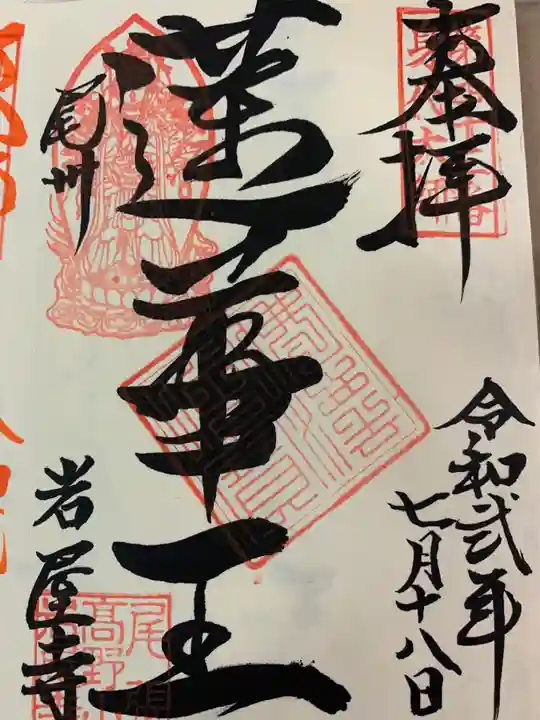 奉拝
令和弐年
七月十八日
蓮華王
尾州
岩屋寺
尾
高野